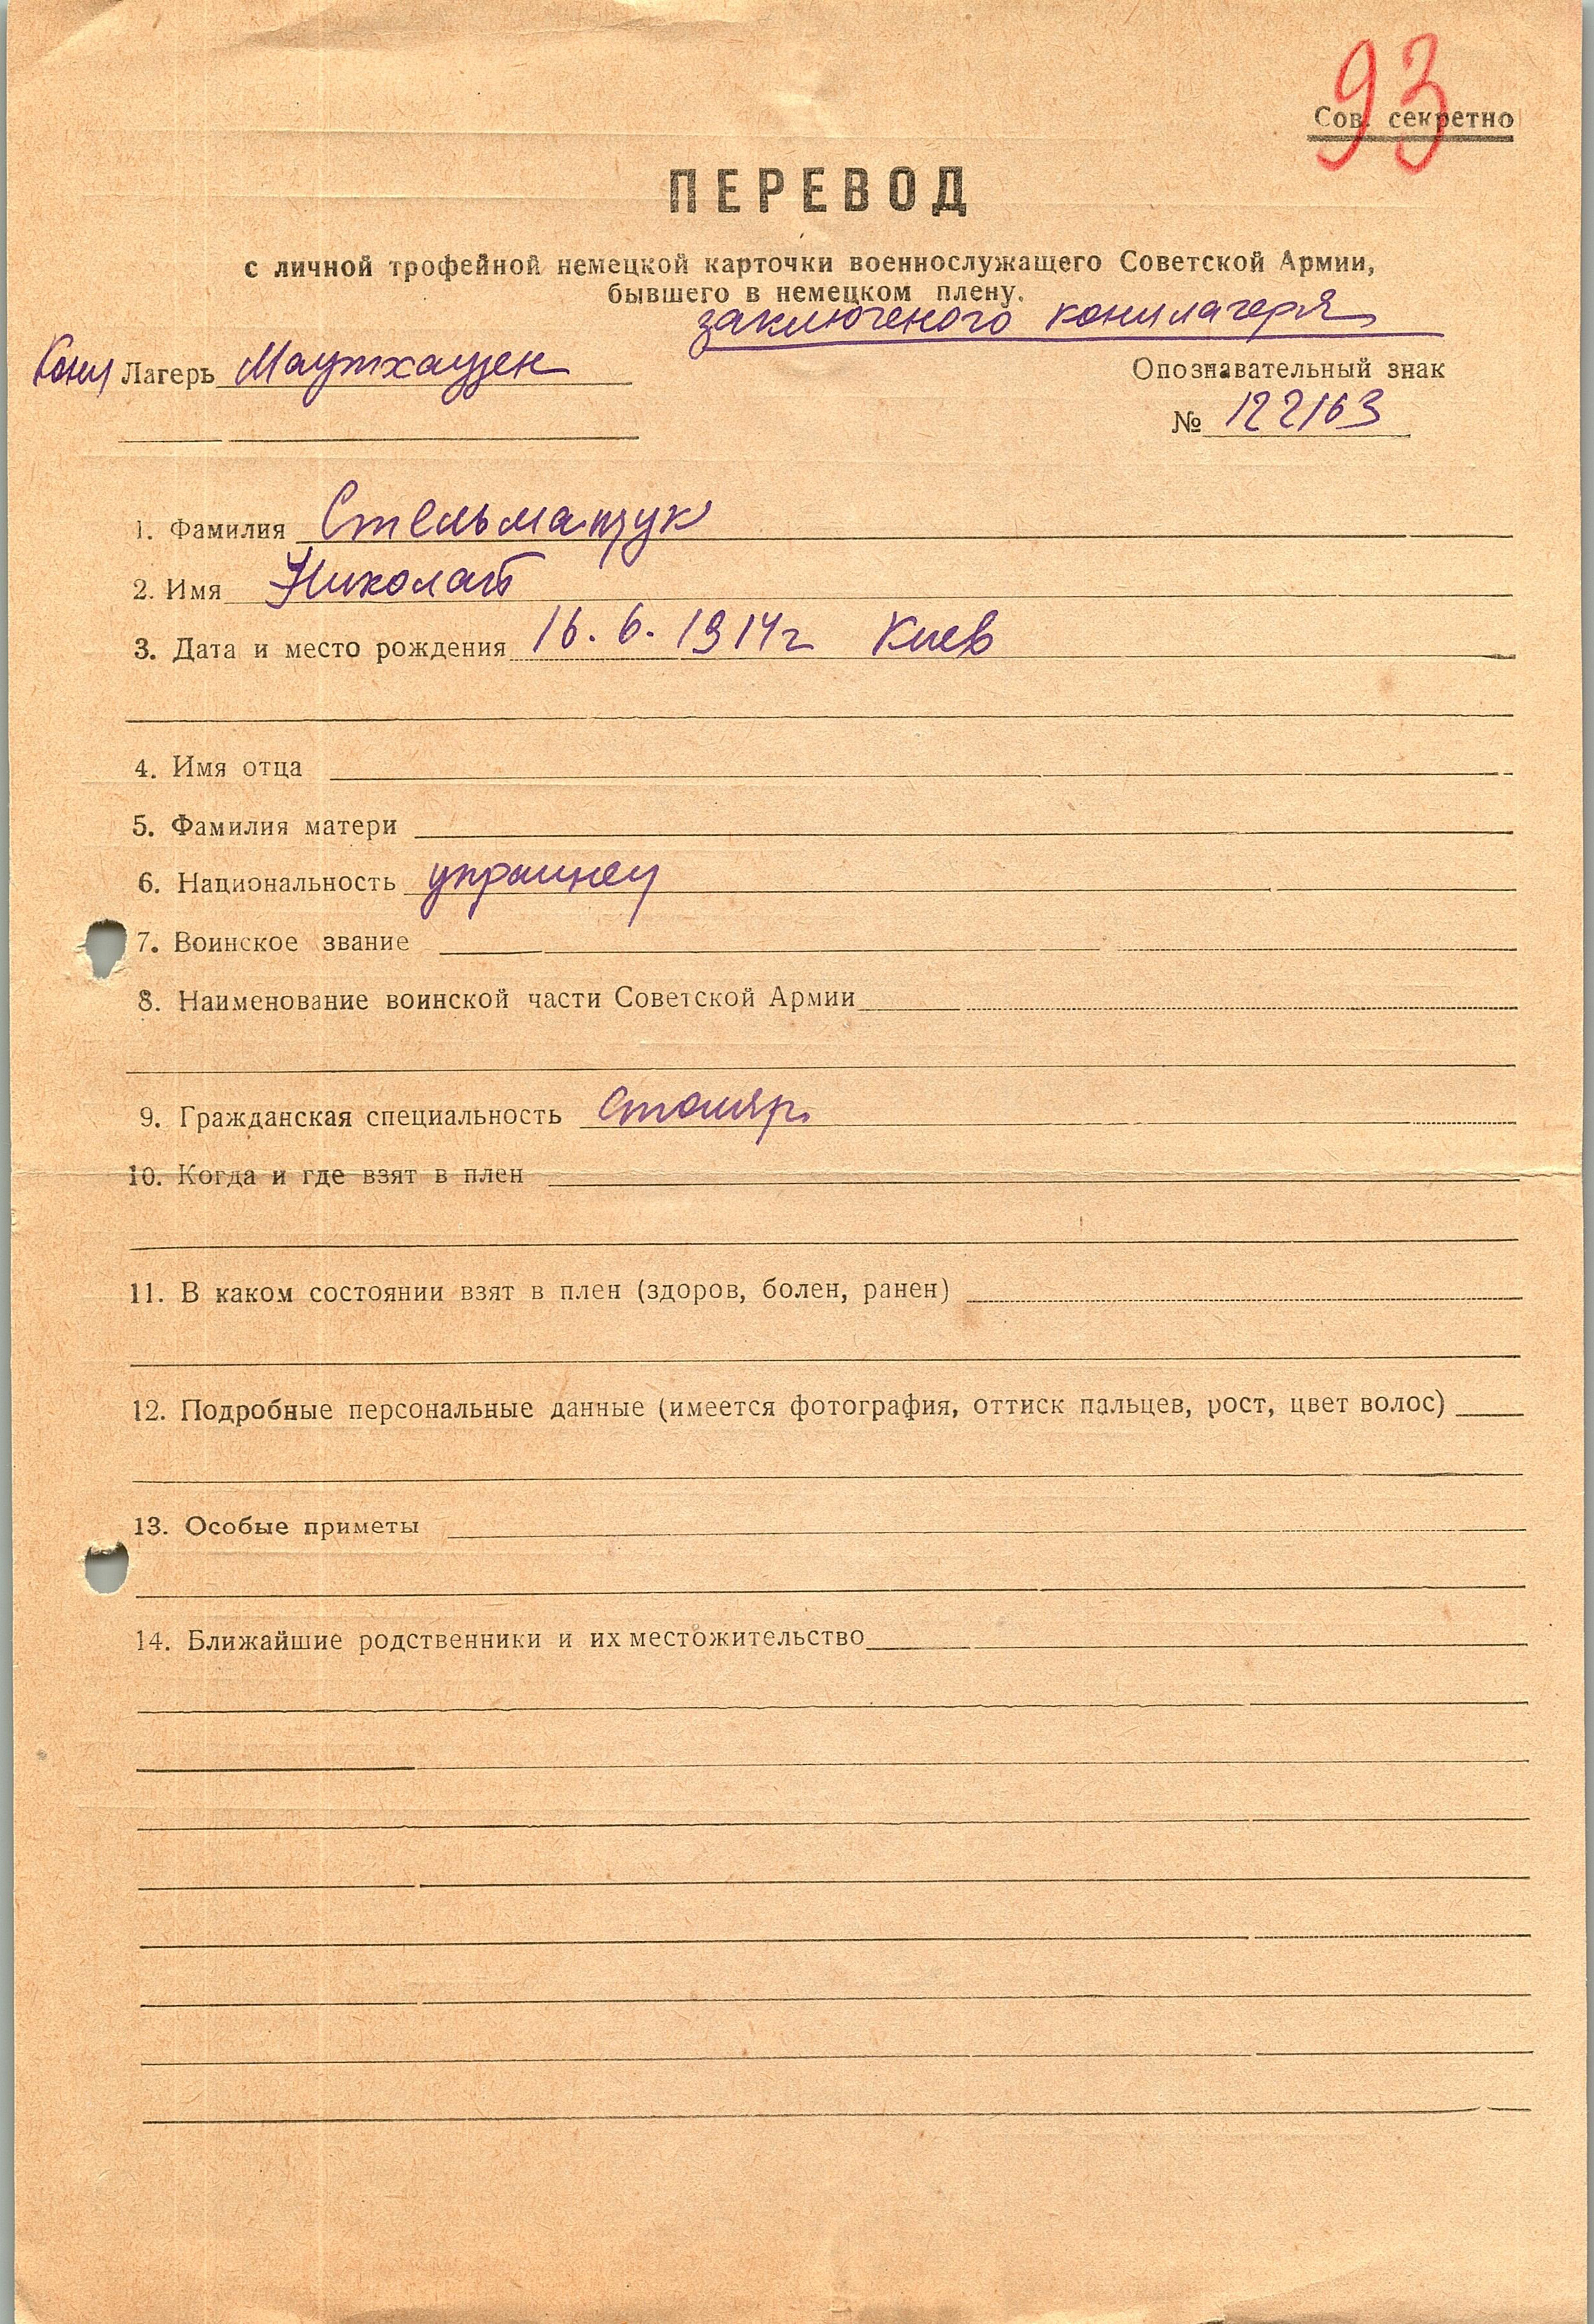 93
Сов. секретно
ПЕРЕВОД
с личной трофейной немецкой карточки военнослужащего Советской Армии,
бывшего в немецком плену.
заключеного концлагеря
Конц Лагерь Маутхаузен
Опознавательный знак
№ 122163
1. Фамилия Стельмащук
2. Имя Николай
3. Дата и место рождения 16. 6. 1914г Киев
4. Имя отца
5. Фамилия матери
6. Национальность украинец
7. Воинское звание
8. Наименование воинской части Советской Армии
9. Гражданская специальность Столяр.
10. Когда и где взят в плен
11. В каком состоянии взят в плен (здоров, болен, ранен)
12. Подробные персональные данные (имеется фотография, оттиск пальцев, рост, цвет волос)
13. Особые приметы
14. Ближайшие родственники и их местожительство